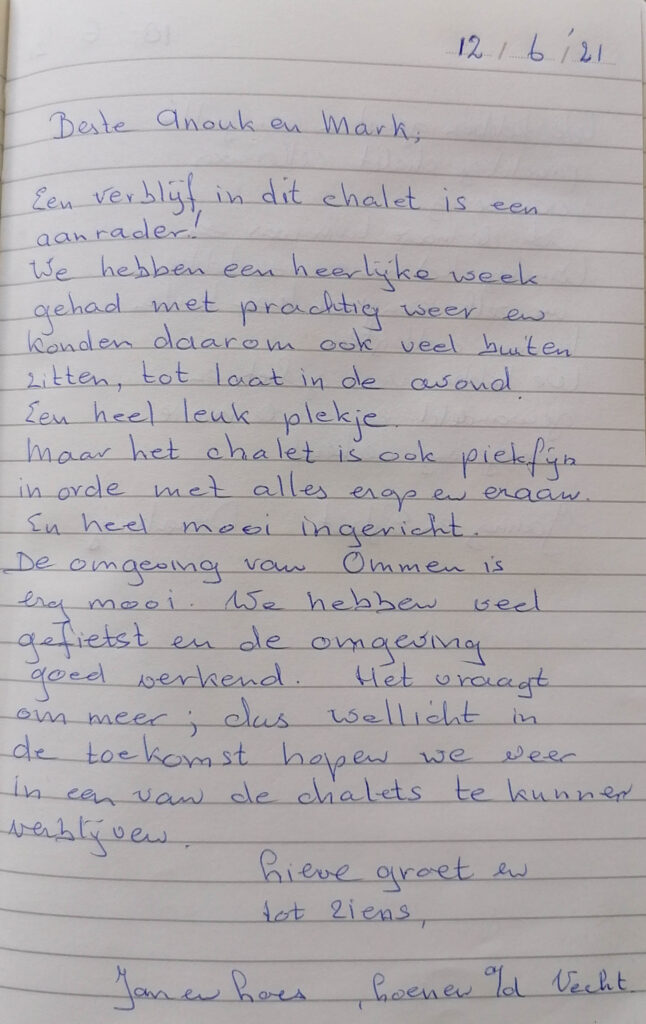 12 / 6 / 21
Beste Anouk en Mark,
Een verblijf in dit chalet is een
aanrader!
We hebben een heerlijke week
gehad met prachtig weer en
konden daarom ook veel buiten
zitten, tot laat in de avond.
Een heel leuk plekje.
Maar het chalet is ook piekfijn
in orde met alles erop en eraan.
En heel mooi ingericht.
De omgeving van Ommen is
erg mooi. We hebben veel
gefietst en de omgeving
goed verkend. Het vraagt
om meer; dus wellicht in
de toekomst hopen we weer
in een van de chalets te kunnen
verblijven.
Lieve groet en
tot ziens,
Jan en Loes, Loenen a/d Vecht.